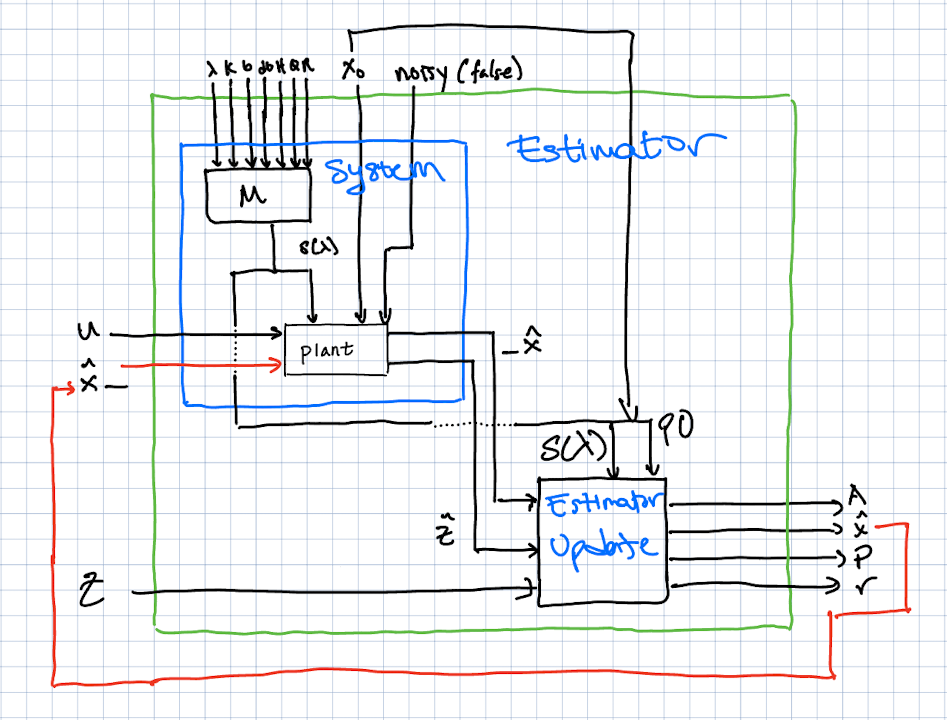 λ K b do H Q R x₀ noisy (false)
Estimator
System
M
S(λ)
u
plant
_x̂
x̂_
S(λ) P0
Estimator
Update
ẑ
z
x̂
p
r